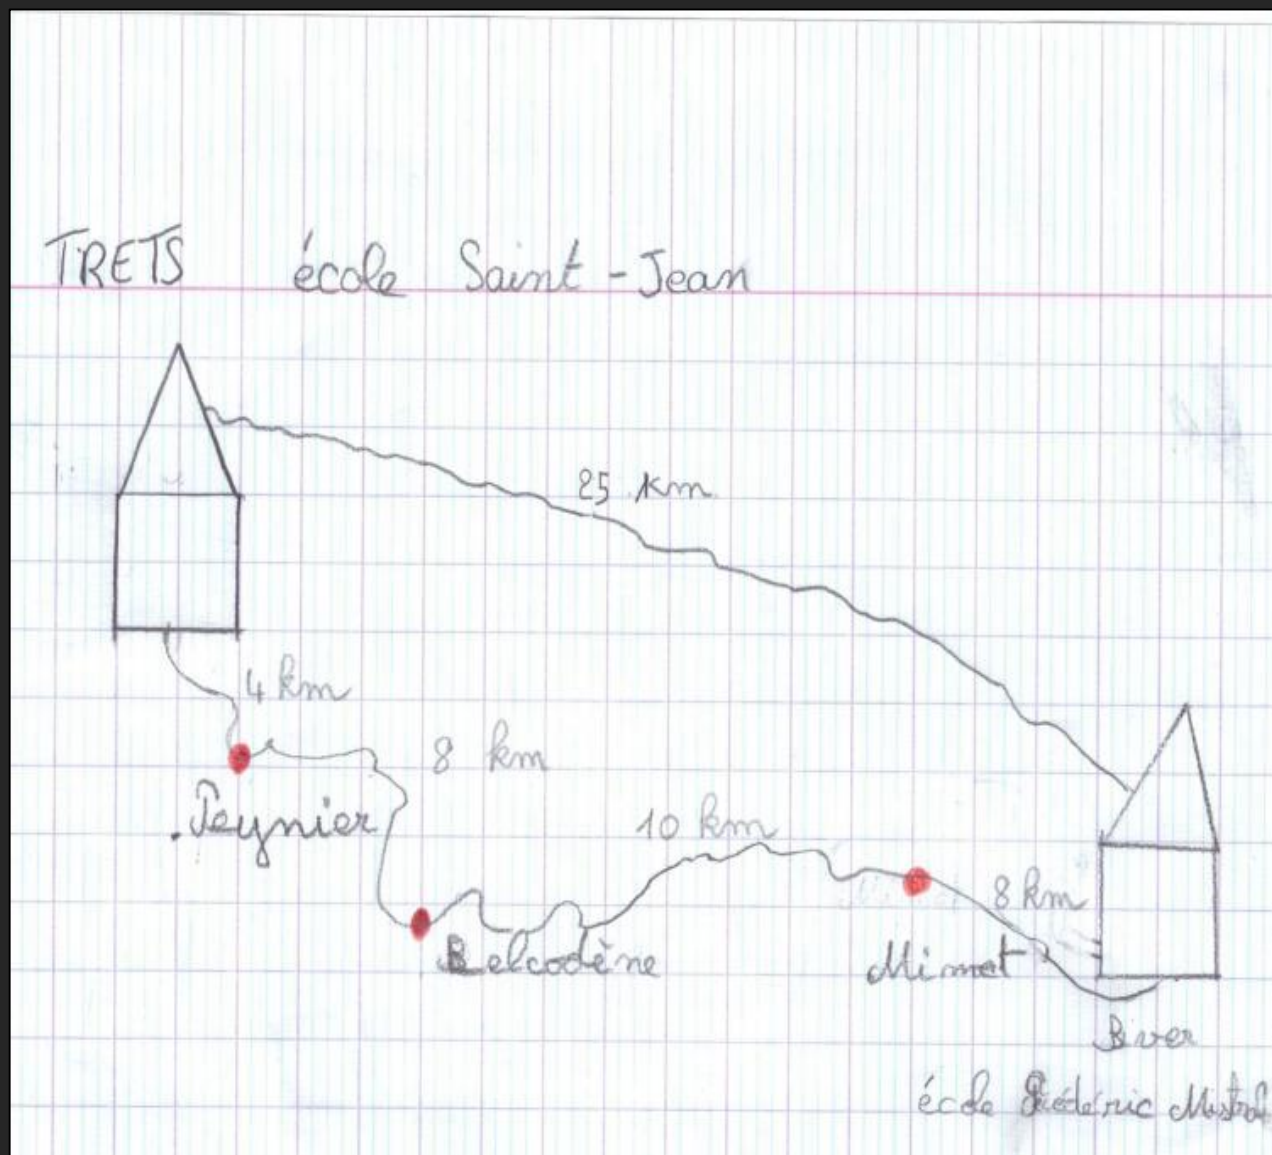 TRETS école Saint-Jean
25 km
4 km
8 km
Peynier
10 km
8 km
Belcodène
Mimet
Biver
école Frédéric Mistral